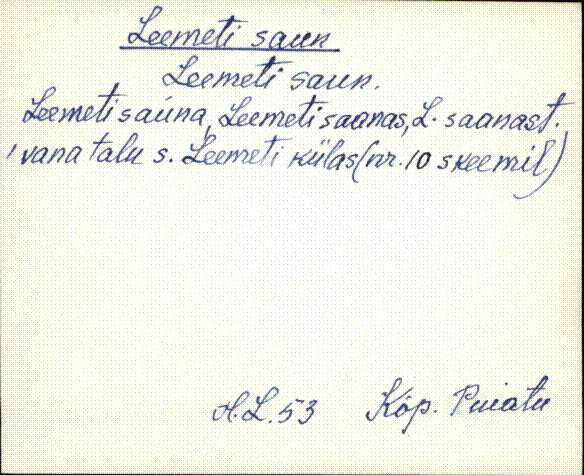 Leemeti saun
Leemeti saun.
Leemeti sauna, Leemeti saanas, L. saanast.
, vana talu s. Leemeti külas (nr. 10 skeemil)
H.L. 53 Kõp. Puiatu